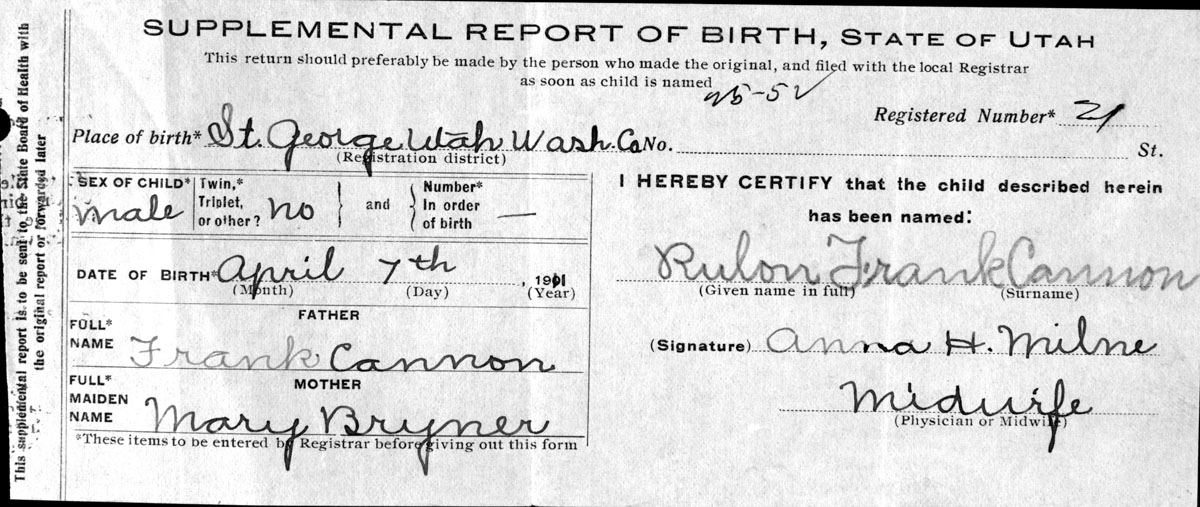 SUPPLEMENTAL REPORT OF BIRTH, STATE OF UTAH
This return should preferably be made by the person who made the original, and filed with the local Registrar
as soon as child is named
Registered Number* 21
Place of birth* St. George Utah Wash. Co No. St.
(Registration district)
SEX OF CHILD* male
Twin,* Triplet, or other? no } and { Number* In order of birth —
DATE OF BIRTH* April 7th, 1911
(Month) (Day) (Year)
FATHER
FULL* NAME Frank Cannon
MOTHER
FULL* MAIDEN NAME Mary Bryner
*These items to be entered by Registrar before giving out this form
I HEREBY CERTIFY that the child described herein
has been named:
Rulon Frank Cannon
(Given name in full) (Surname)
(Signature) Anna H. Milne
Midwife
(Physician or Midwife)
This supplemental report is to be sent to the State Board of Health with
the original report or forwarded later